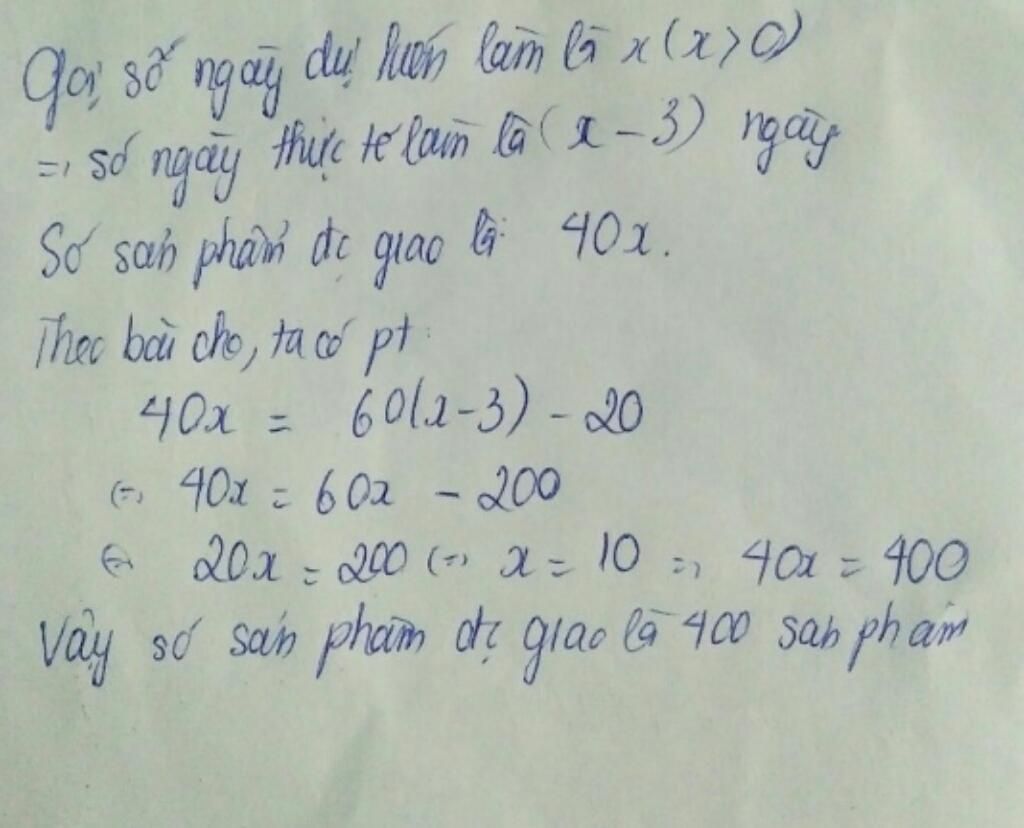 Gọi số ngày dự kiến làm là x (x > 0)
=> số ngày thực tế làm là (x - 3) ngày
Số sản phẩm đc giao là: 40x.
Theo bài cho, ta có pt:
40x = 60(x-3) - 20
<=> 40x = 60x - 200
<=> 20x = 200 <=> x = 10 => 40x = 400
Vậy số sản phẩm đc giao là 400 sản phẩm